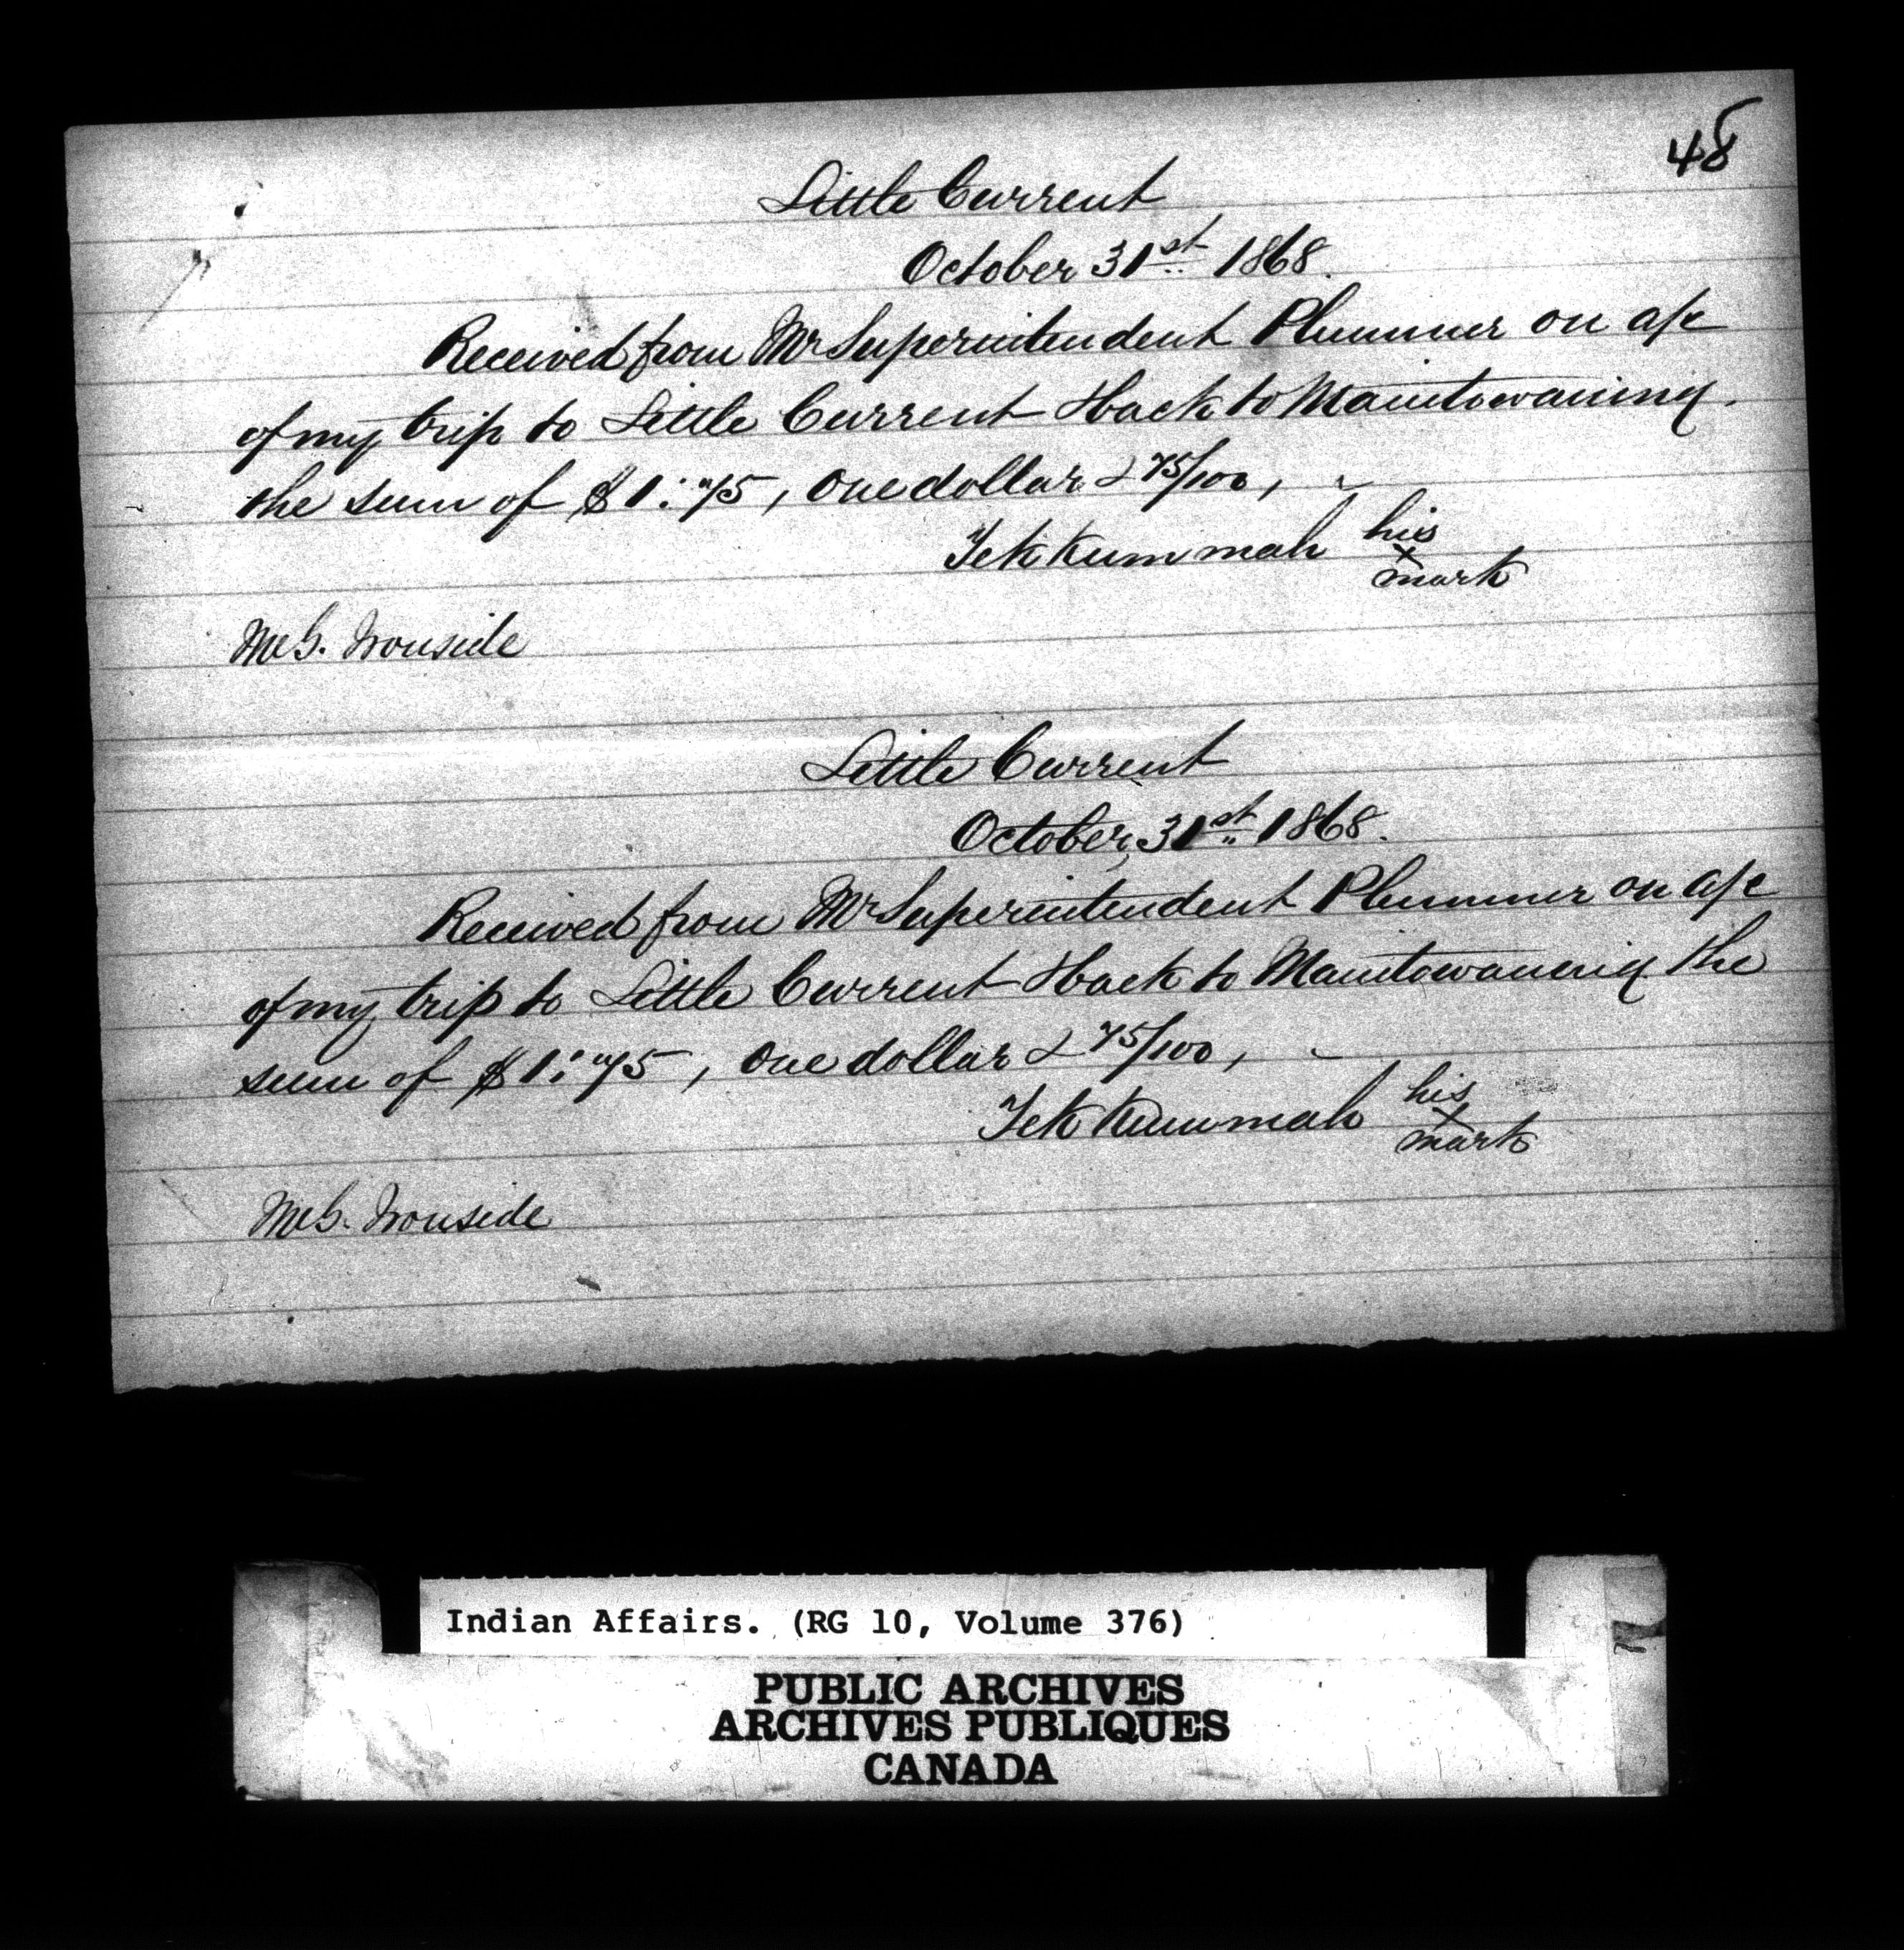 48
Little Current
October 31st 1868.
Received from Mr Superintendent Plummer on a/c
of my trip to Little Current & back to Manitowaning.
the sum of $1:75, One dollar & 75/100,
Tekkummah his
x
mark
McG. Ironside
Little Current
October, 31st 1868.
Received from Mr Superintendent Plummer on a/c
of my trip to Little Current & back to Manitowaning the
sum of $1:75, One dollar & 75/100,
Tekkummah his
x
mark
McG. Ironside
Indian Affairs. (RG 10, Volume 376)
PUBLIC ARCHIVES
ARCHIVES PUBLIQUES
CANADA